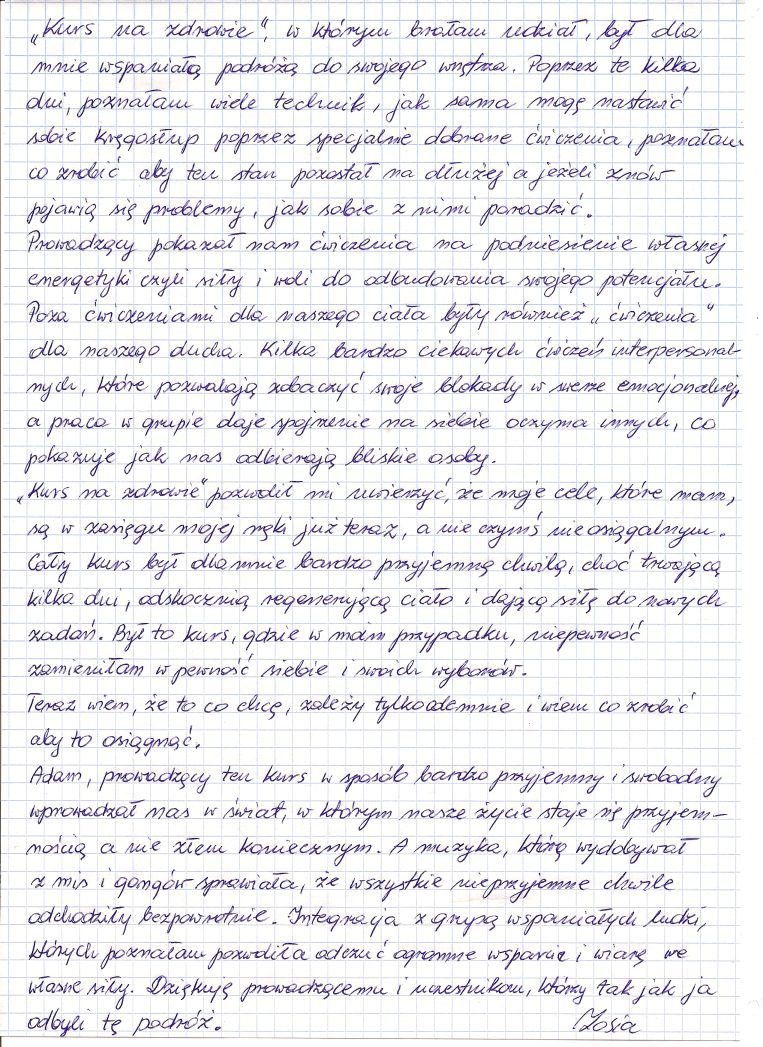 „Kurs na zdrowie", w którym brałam udział, był dla
mnie wspaniałą podróżą do swojego wnętrza. Poprzez te kilka
dni, poznałam wiele technik, jak sama mogę nastawić
sobie kręgosłup poprzez specjalnie dobrane ćwiczenia, poznałam
co zrobić aby ten stan pozostał na dłużej a jeżeli znów
pojawią się problemy, jak sobie z nimi poradzić.
Prowadzący pokazał nam ćwiczenia na podniesienie własnej
energetyki czyli siły i woli do odbudowania swojego potencjału.
Poza ćwiczeniami dla naszego ciała były również „ćwiczenia"
dla naszego ducha. Kilka bardzo ciekawych ćwiczeń interpersonal-
nych, które pozwalają zobaczyć swoje blokady w sferze emocjonalnej,
a praca w grupie daje spojrzenie na siebie oczyma innych, co
pokazuje jak nas odbierają bliskie osoby.
„Kurs na zdrowie" pozwolił mi uwierzyć, że moje cele, które mam,
są w zasięgu mojej ręki już teraz, a nie czymś nieosiągalnym.
Cały kurs był dla mnie bardzo przyjemną chwilą, choć trwającą
kilka dni, odskocznią regenerującą ciało i dającą siłę do nowych
zadań. Był to kurs, gdzie w moim przypadku, niepewność
zamieniłam w pewność siebie i swoich wyborów.
Teraz wiem, że to co chcę, zależy tylko ode mnie i wiem co zrobić
aby to osiągnąć.
Adam, prowadzący ten kurs w sposób bardzo przyjemny i swobodny
wprowadzał nas w świat, w którym nasze życie staje się przyjem-
nością a nie złem koniecznym. A muzyka, którą wydobywał
z mis i gongów sprawiała, że wszystkie nieprzyjemne chwile
odchodziły bezpowrotnie. Integracja z grupą wspaniałych ludzi,
których poznałam pozwoliła odczuć ogromne wsparcie i wiarę we
własne siły. Dziękuję prowadzącemu i uczestnikom, którzy tak jak ja
odbyli tę podróż. Zosia